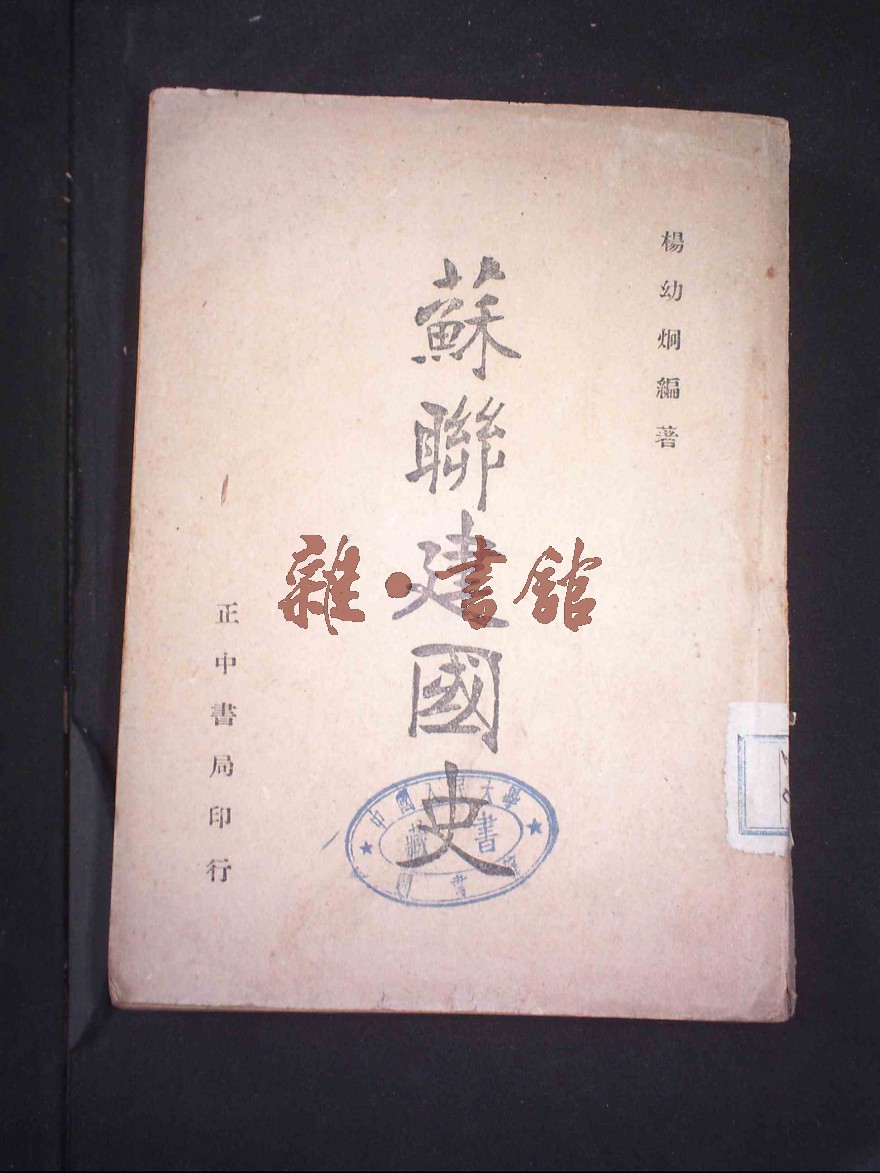 楊幼炯編著
蘇聯建國史
正中書局印行
雜·書館
中國人民大學
藏書
圖書館